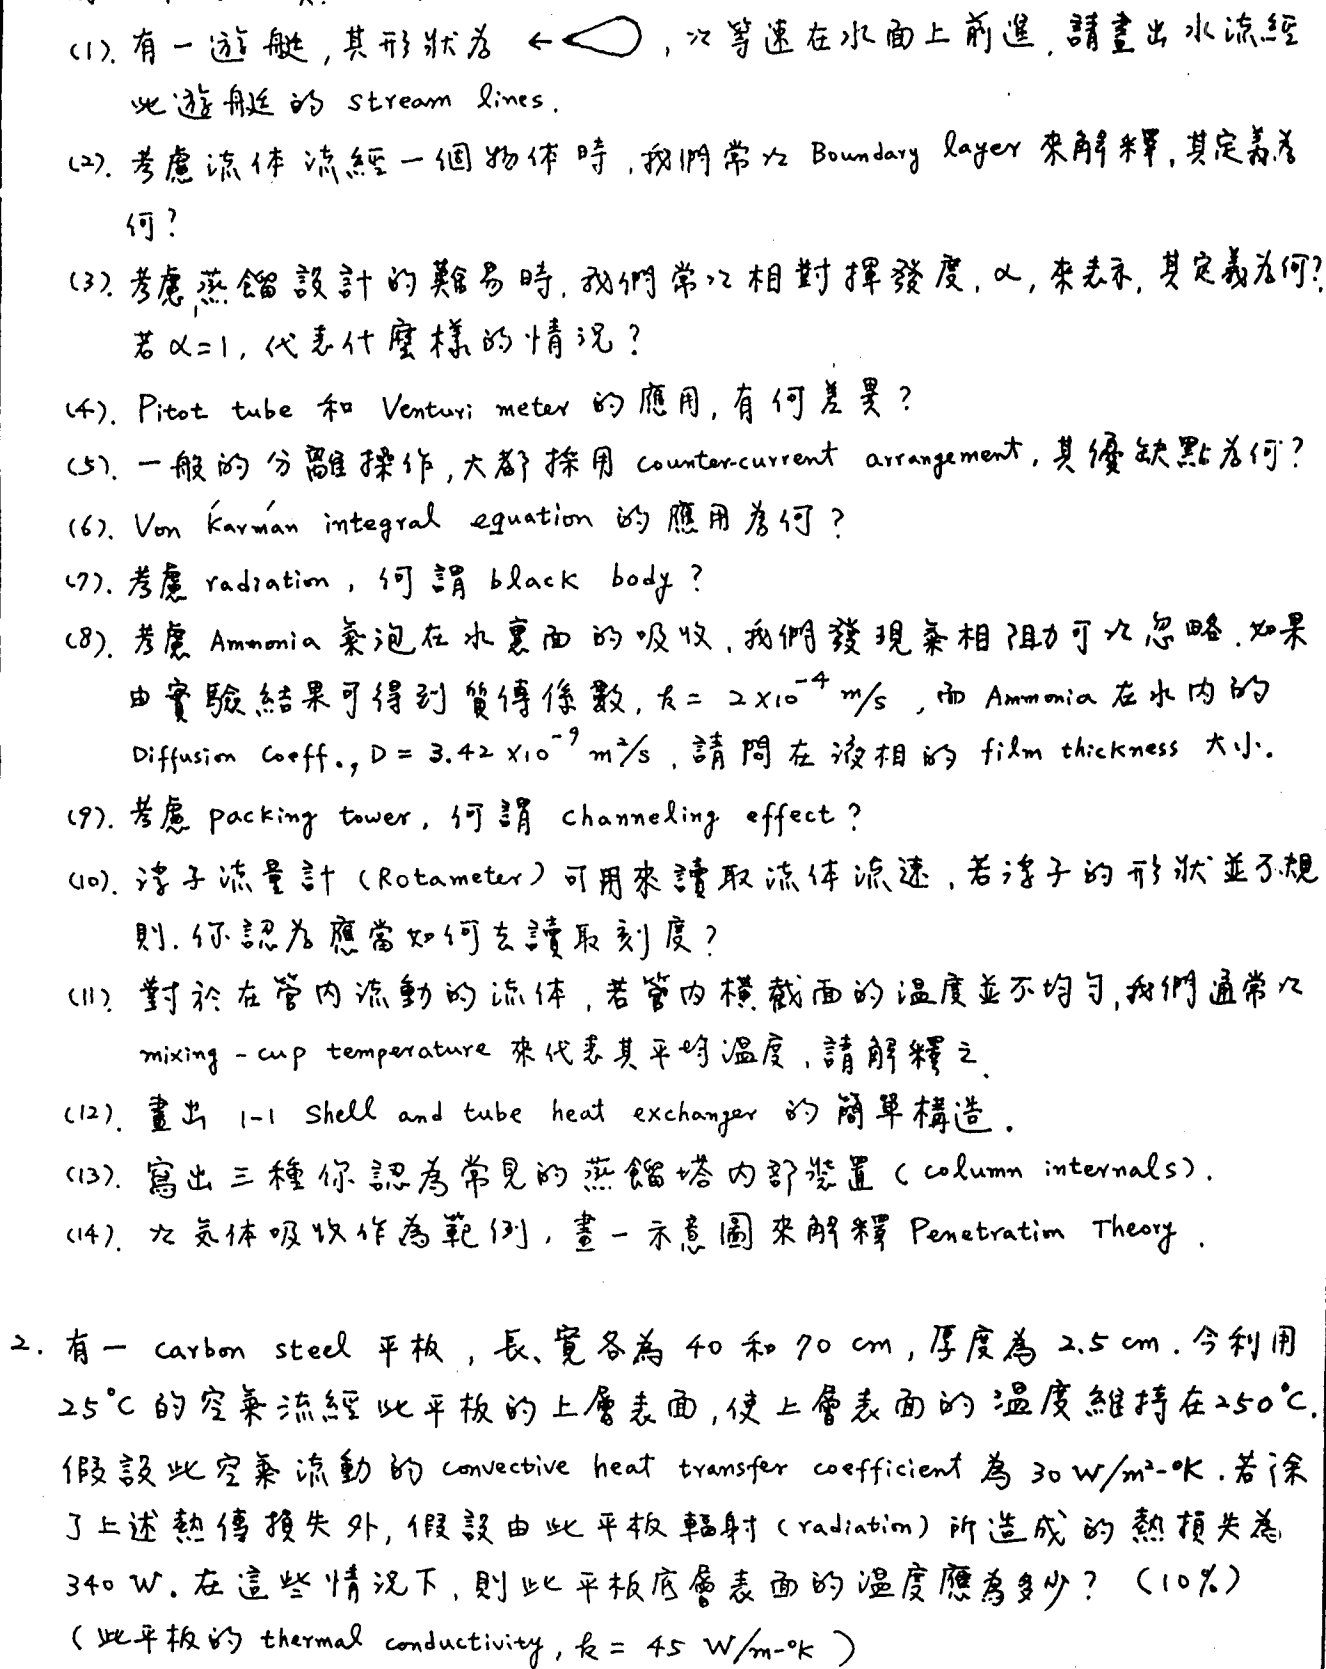 (1). 有一遊艇，其形狀為 ←，以等速在水面上前進，請畫出水流經
此遊艇的 stream lines.
(2). 考慮流体流經一個物体時，我們常以 Boundary layer 來解釋，其定義為
何？
(3). 考慮蒸餾設計的難易時，我們常以相對揮發度，α，來表示，其定義為何？
若 α=1，代表什麼樣的情況？
(4). Pitot tube 和 Venturi meter 的應用，有何差異？
(5). 一般的分離操作，大都採用 counter-current arrangement，其優缺點為何？
(6). Von Kármán integral equation 的應用為何？
(7). 考慮 radiation，何謂 black body？
(8). 考慮 Ammonia 氣泡在水裏面的吸收，我們發現氣相阻力可以忽略，如果
由實驗結果可得到質傳係數，k = 2×10⁻⁴ m/s，而 Ammonia 在水內的
Diffusion Coeff., D = 3.42 ×10⁻⁹ m²/s，請問在液相的 film thickness 大小.
(9). 考慮 packing tower，何謂 channeling effect？
(10). 浮子流量計 (Rotameter) 可用來讀取流体流速，若浮子的形狀並不規
則，你認為應當如何去讀取刻度？
(11). 對於在管內流動的流体，若管內橫截面的溫度並不均勻，我們通常以
mixing-cup temperature 來代表其平均溫度，請解釋之.
(12). 畫出 1-1 Shell and tube heat exchanger 的簡單構造.
(13). 寫出三種你認為常見的蒸餾塔內部裝置 (column internals).
(14). 以気体吸收作為範例，畫一示意圖來解釋 Penetration Theory.
2. 有一 carbon steel 平板，長、寬各為 40 和 70 cm，厚度為 2.5 cm. 今利用
25°C 的空氣流經此平板的上層表面，使上層表面的溫度維持在250°C.
假設此空氣流動的 convective heat transfer coefficient 為 30 W/m²-°K. 若除
了上述熱傳損失外，假設由此平板輻射 (radiation) 所造成的熱損失為
340 W. 在這些情況下，則此平板底層表面的溫度應為多少？ (10%)
(此平板的 thermal conductivity, k = 45 W/m-°K )